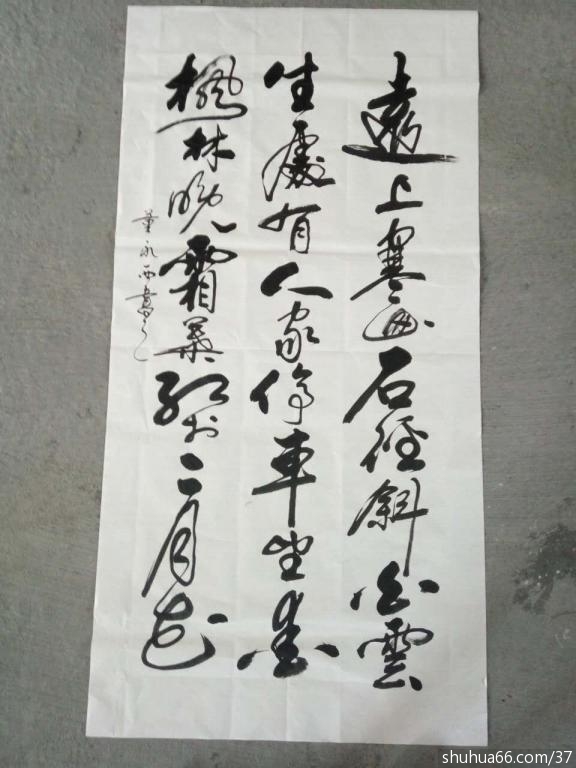 遠上寒山石徑斜白雲
生處有人家停車坐愛
楓林晚霜葉紅於二月花
董永西書之
shuhua66.com/37